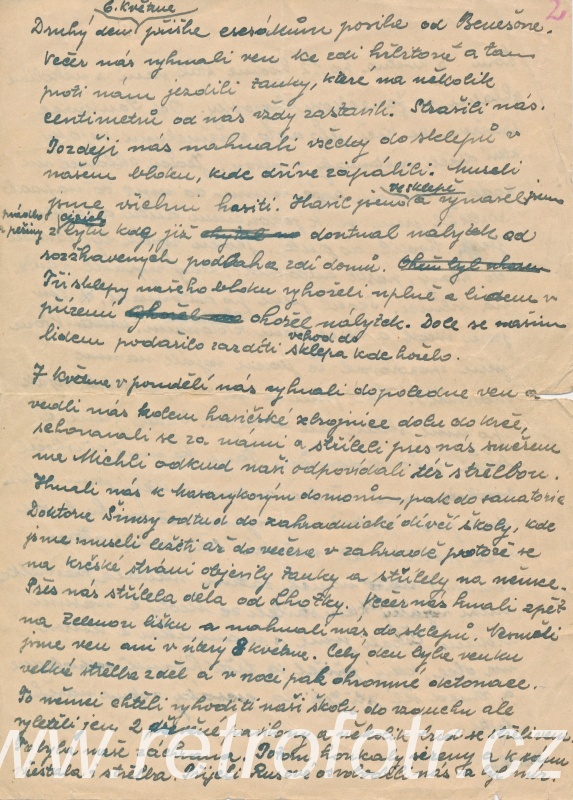 2
6. květne
Druhý den přišla esesákům posila od Benešova.
Večer nás vyhnali ven ke zdi hřbitově a tam
proti nám jezdili tanky, které na několik
centimetrů od nás vždy zastavili. Strašili nás.
Později nás nahnali všecky do sklepů v
našem bloku, kde dříve zapálili. Museli
jsme všichni hasiti. Hasil jsem ve sklepě a vynášel jsem
prádlo a peřiny z bytu kde již dontnal nábytek od
rozžhavených podlah a zdí domů.
Tři sklepy našeho bloku vyhořeli uplně a lidem v
přízemí ohořel nábytek. Dole se našim
lidem podařilo zazdíti vchod do sklepa kde hořelo.
7 května v pondělí nás vyhnali dopoledne ven a
vedli nás kolem hasičské zbrojnice dolu do Krče,
schovávali se za námi a stříleli přes nás směrem
na Michli odkud naši odpovídali též střelbou.
Hnali nás k Masarykovým domovům, pak do sanatoria
Doktora Šimsy odtud do zahradnické dívčí školy, kde
jsme museli ležeti až do večera v zahradě protože se
na krčské stráni objevily tanky a střílely na němce.
Přes nás střílela děla od Lhotky. Večer nás hnali zpět
na Zelenou lišku a nahnali nás do sklepů. Nesměli
jsme ven ani v úterý 8 května. Celý den byla venku
velká střelba z děl a v noci pak ohromné detonace.
To němci chtěli vyhoditi naši školu do vzduchu ale
vyletěli jen 2 dřevěné pavilony a několik beden se střelivem.
To byla naše záchrana. Potom houkaly sirény a k ránu
přestala střelba. Přijeli Rusové osvobodili nás a
www.retrofoto.cz